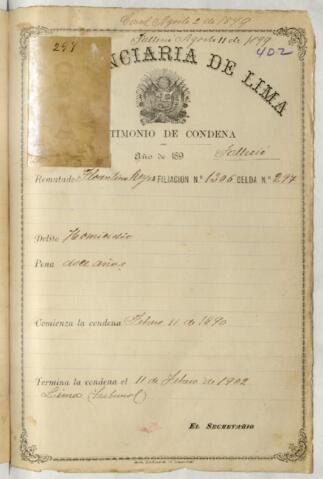 Agosto 2 de 1899
Falleció Agosto 11 de 1899
297
402
NCIARIA DE LIMA
TIMONIO DE CONDENA
Año de 189
Falleció
Rematado Florentino Reyes FILIACION N.° 1306 CELDA N.° 297
Delito Homicidio
Pena doce años
Comienza la condena Febrero 11 de 1890
Termina la condena el 11 de Febrero de 1902
Lima
EL SECRETARIO